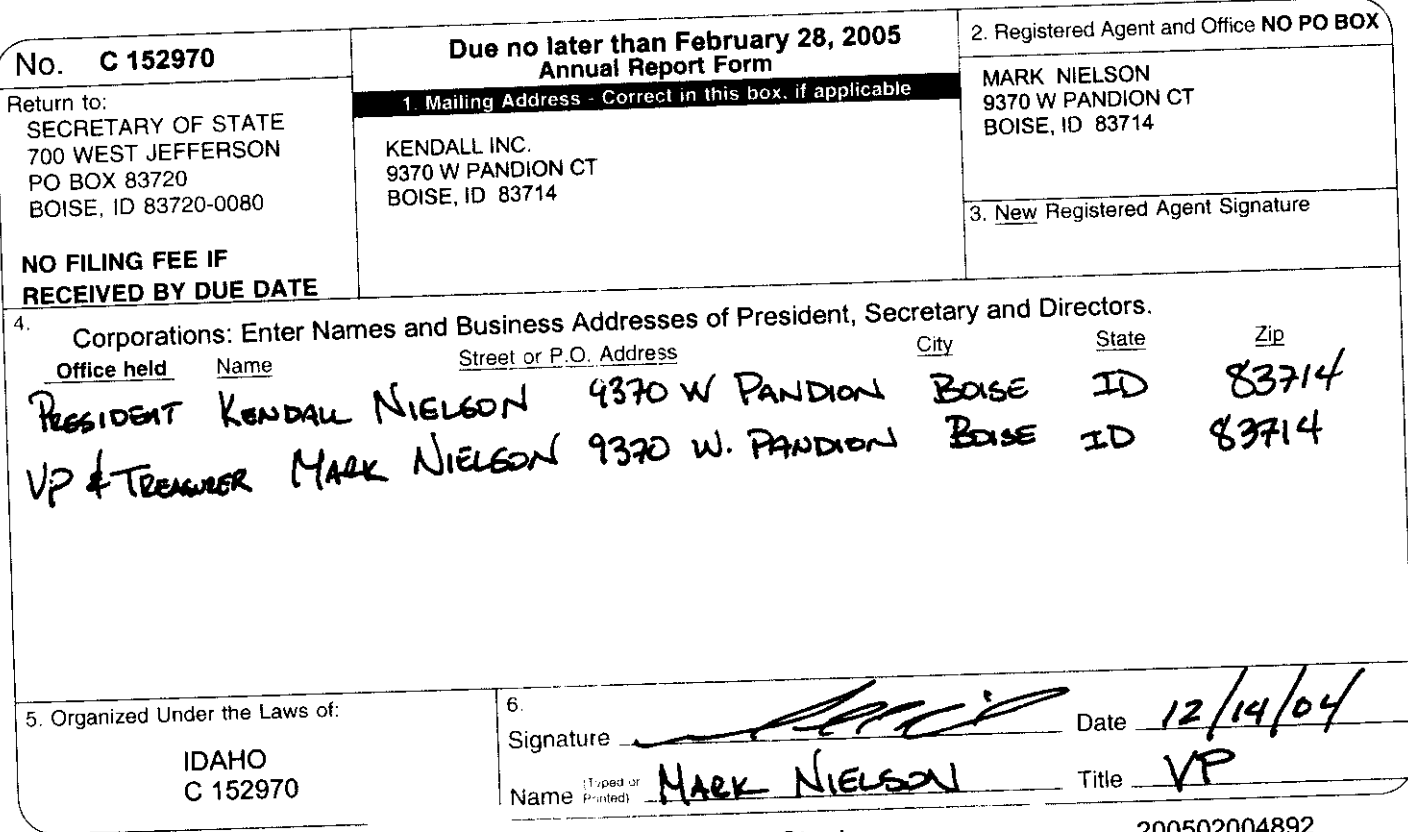 No. C 152970
Return to:
SECRETARY OF STATE
700 WEST JEFFERSON
PO BOX 83720
BOISE, ID 83720-0080
NO FILING FEE IF
RECEIVED BY DUE DATE
Due no later than February 28, 2005
Annual Report Form
1. Mailing Address - Correct in this box, if applicable
KENDALL INC.
9370 W PANDION CT
BOISE, ID 83714
2. Registered Agent and Office NO PO BOX
MARK NIELSON
9370 W PANDION CT
BOISE, ID 83714
3. New Registered Agent Signature
4. Corporations: Enter Names and Business Addresses of President, Secretary and Directors.
Office held Name Street or P.O. Address City State Zip
PRESIDENT KENDALL NIELSON 9370 W PANDION BOISE ID 83714
VP & TREASURER MARK NIELSON 9370 W. PANDION BOISE ID 83714
5. Organized Under the Laws of:
IDAHO
C 152970
6.
Signature Date 12/14/04
Name (Typed or Printed) MARK NIELSON Title VP
200502004892